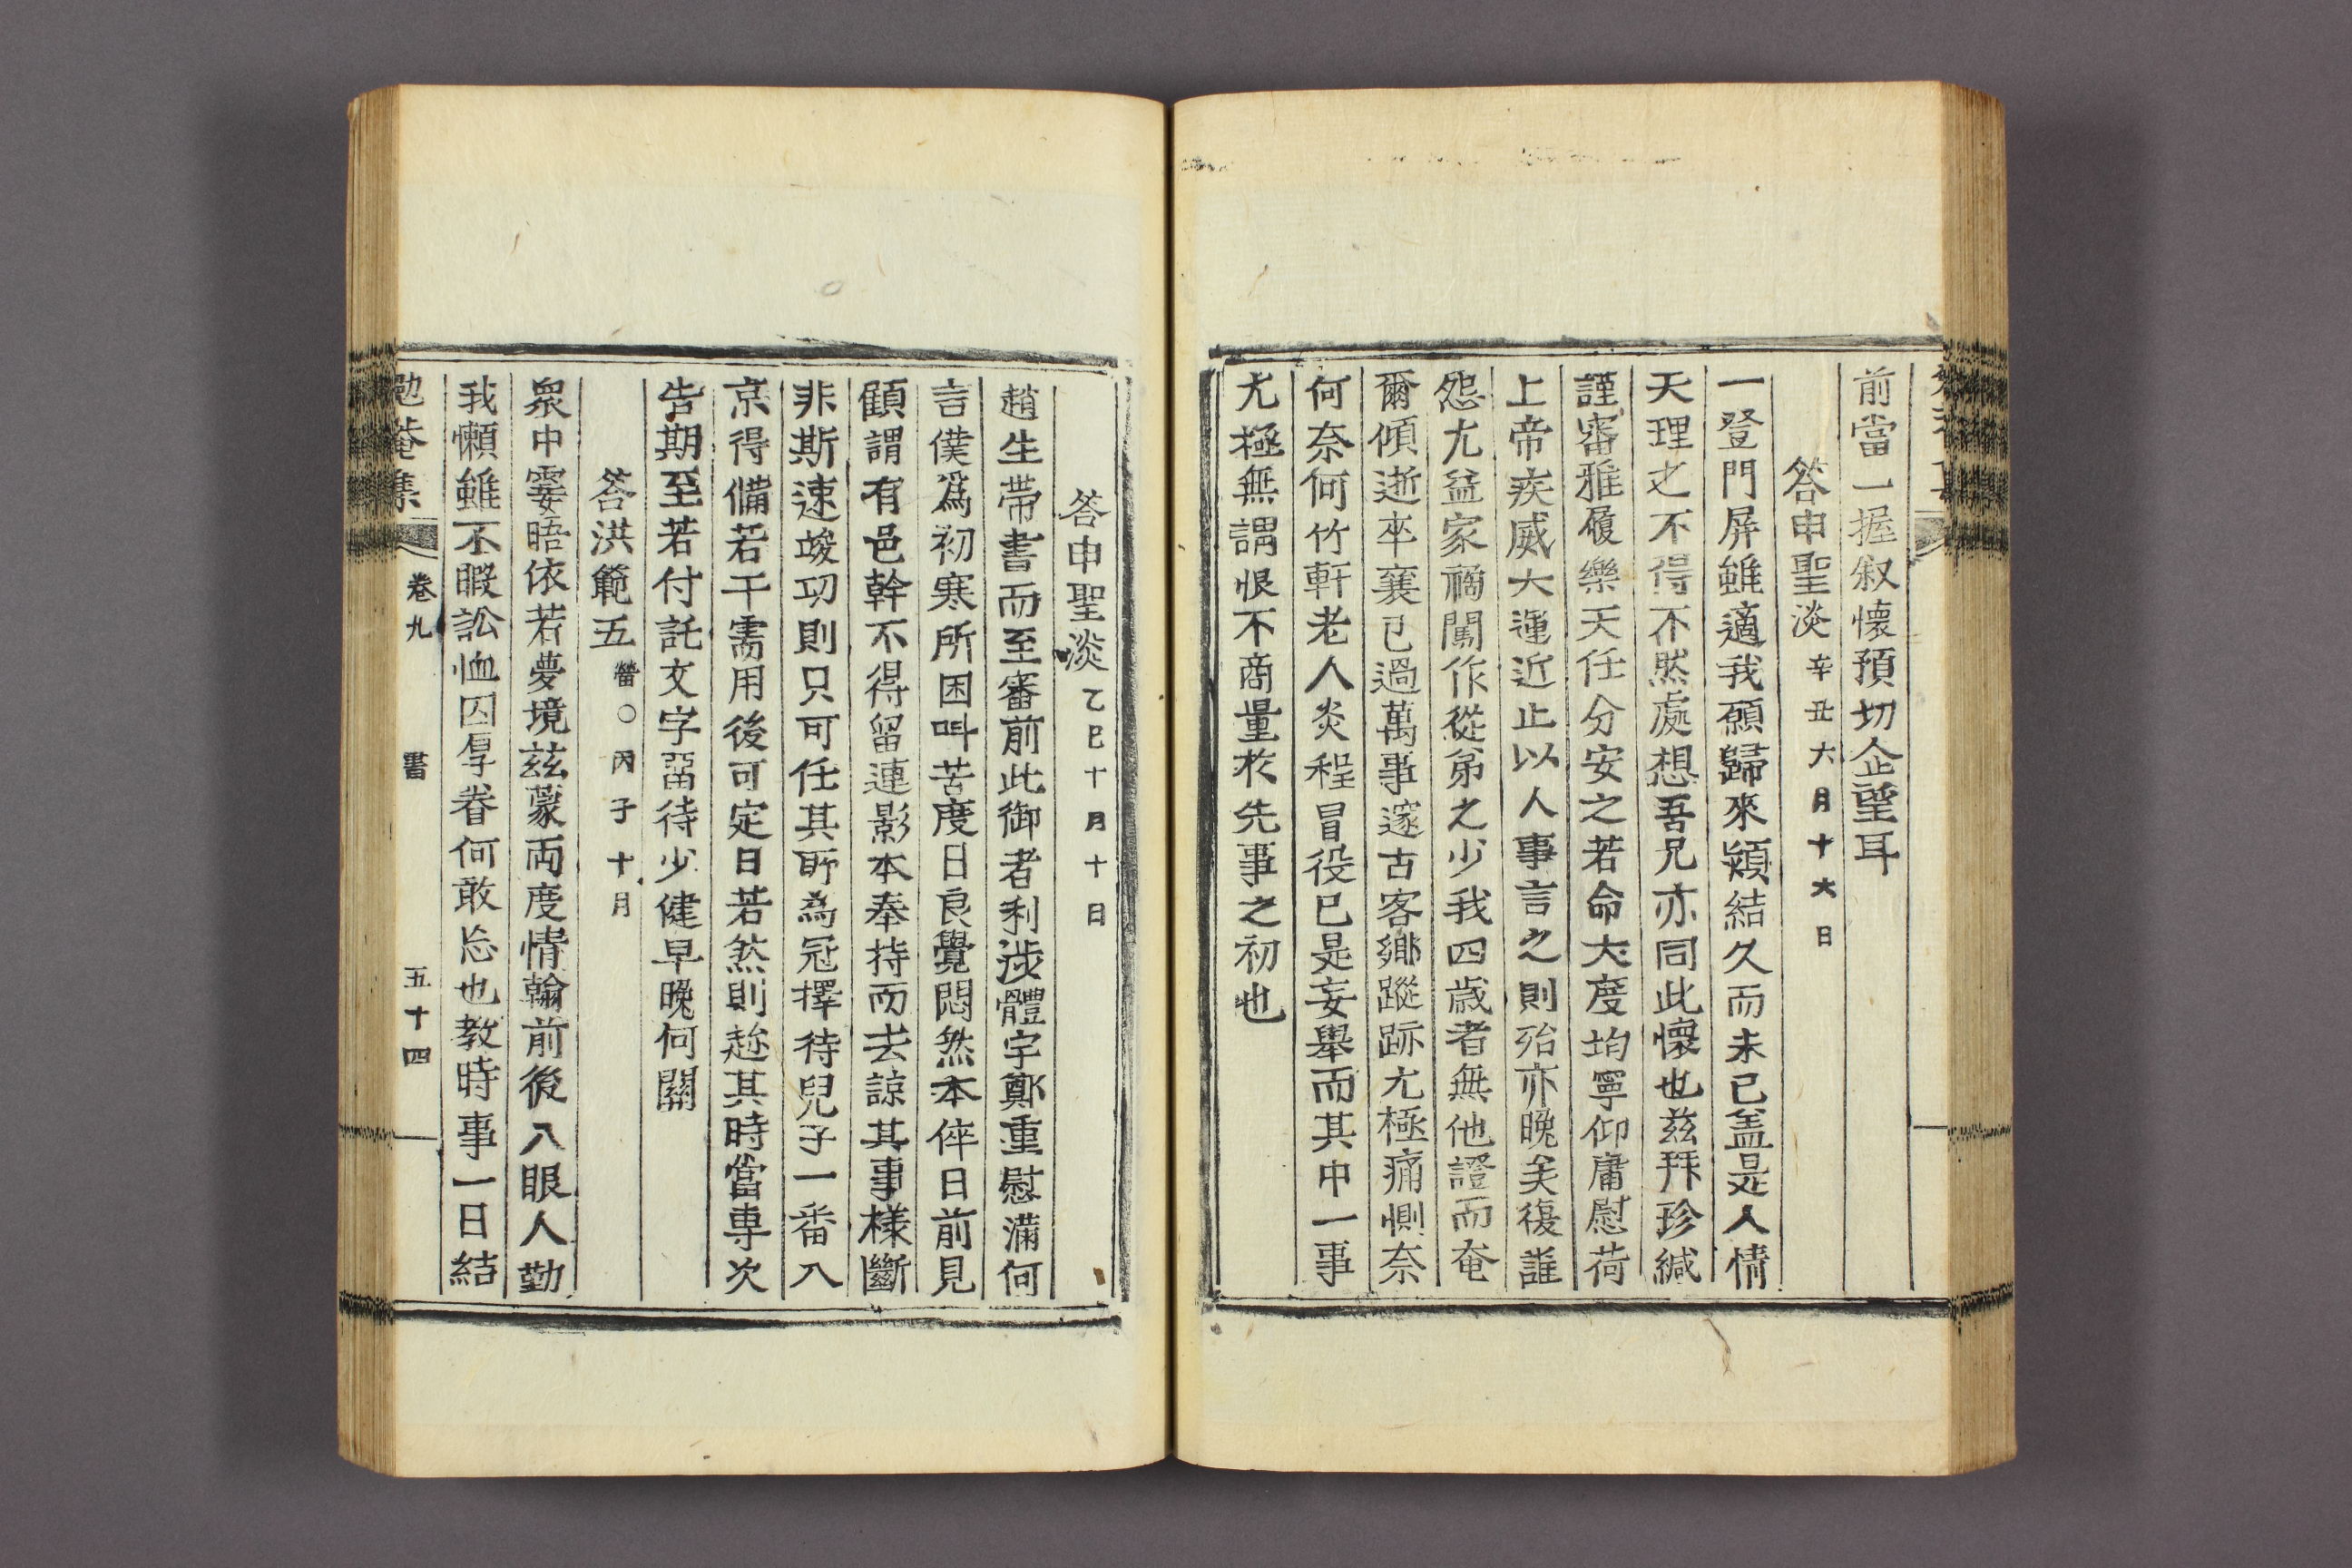 前當一握叙懷預切企望耳
答申聖淡 辛丑六月十六日
一登門屏雖適我願歸來潁結久而未已盖是人情
天理之不得不然處想吾兄亦同此懷也玆拜珍緘
謹審雅履樂天任分安之若命大度均寧仰庸慰荷
上帝疾威大運近止以人事言之則殆亦晚矣復誰
怨尤益家禍闖作從弟之少我四歲者無他證而奄
爾傾逝卒襄已過萬事邃古客鄉蹤跡尤極痛惻奈
何奈何竹軒老人炎程冒役已是妄舉而其中一事
尤極無謂恨不商量於先事之初也
答申聖淡 乙巳十月十日
趙生帶書而至審前此御者利涉體宇鄭重慰滿何
言僕爲初寒所困叫苦度日良覺悶然本倅日前見
顧謂有邑幹不得留連影本奉持而去諒其事樣斷
非斯速竣功則只可任其所為冠擇待兒子一番入
京得備若干需用後可定日若然則趂其時當専次
告期至若付託文字留待少健早晚何關
答洪範五 䎖○丙子十月
衆中霎晤依若夢境玆蒙両度情翰前後入眼人勤
我懶雖不暇訟恤囚厚眷何敢忘也教時事一日結
勉菴集 卷九 書 五十四